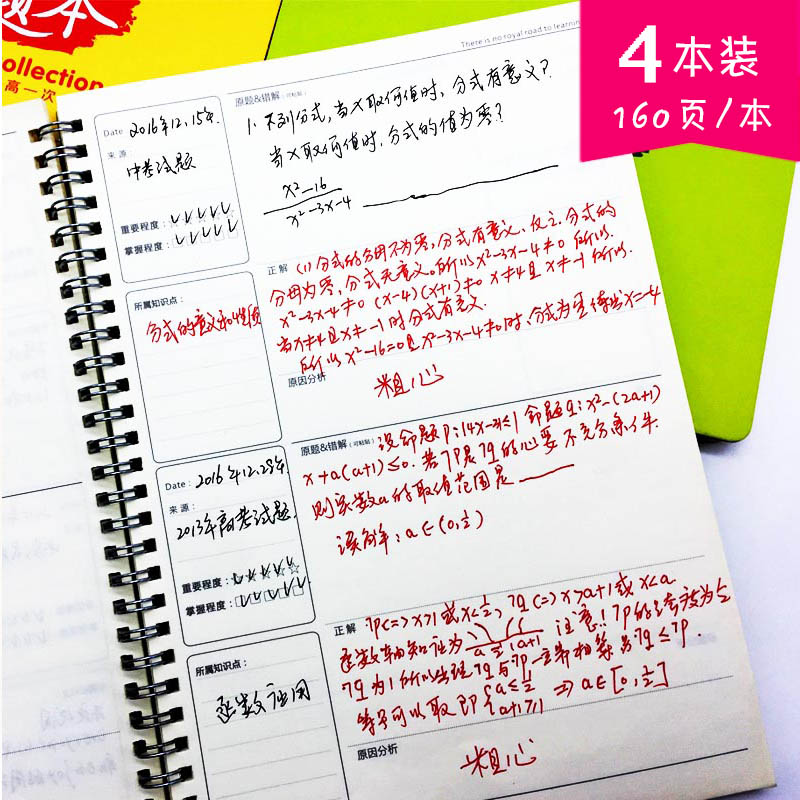 题本
Collection
高一次
4本装
160页/本
There is no royal road to learning
Date 2016年12.15号.
来源
中考试题
重要程度:
掌握程度:
所属知识点:
分式的意义和性质
原题&错解(可粘贴)
1. 不列分式,当x取何值时,分式有意义?
当x取何值时,分式的值为零?
x²-16
x²-3x-4
正解 (1)分式的分母不为零,分式有意义、反之,分式的
分母为零,分式无意义。所以x²-3x-4≠0 所以
x²-3x-4≠0 (x-4)(x+1)≠0 x≠4且x≠-1 所以.
当x≠4且x≠-1时分式有意义.
所以x²-16=0且x²-3x-4≠0时、分式为零得出x=-4
原因分析
粗心
Date: 2016年12.29号.
来源:
2013年高考试题.
重要程度:
掌握程度:
所属知识点:
逻数应用
原题&错解(可粘贴) 设命题p:|4x-3|≤1 命题q:x²-(2a+1)
x+a(a+1)≤0.若¬p是¬q的必要不充分条件.
则实数a的取值范围是
误解:a∈(0,½)
正解 ¬p<=>x>1或x<½,¬q<=>x>a+1或x<a
a ½ 1 a+1 注意!¬p的跨度为½
¬q为1所以出现¬q与¬p一立界相等为¬q≤¬p.
等号可以取即{a≤½
a+1≥1 ⇒a∈[0,½]
原因分析
粗心